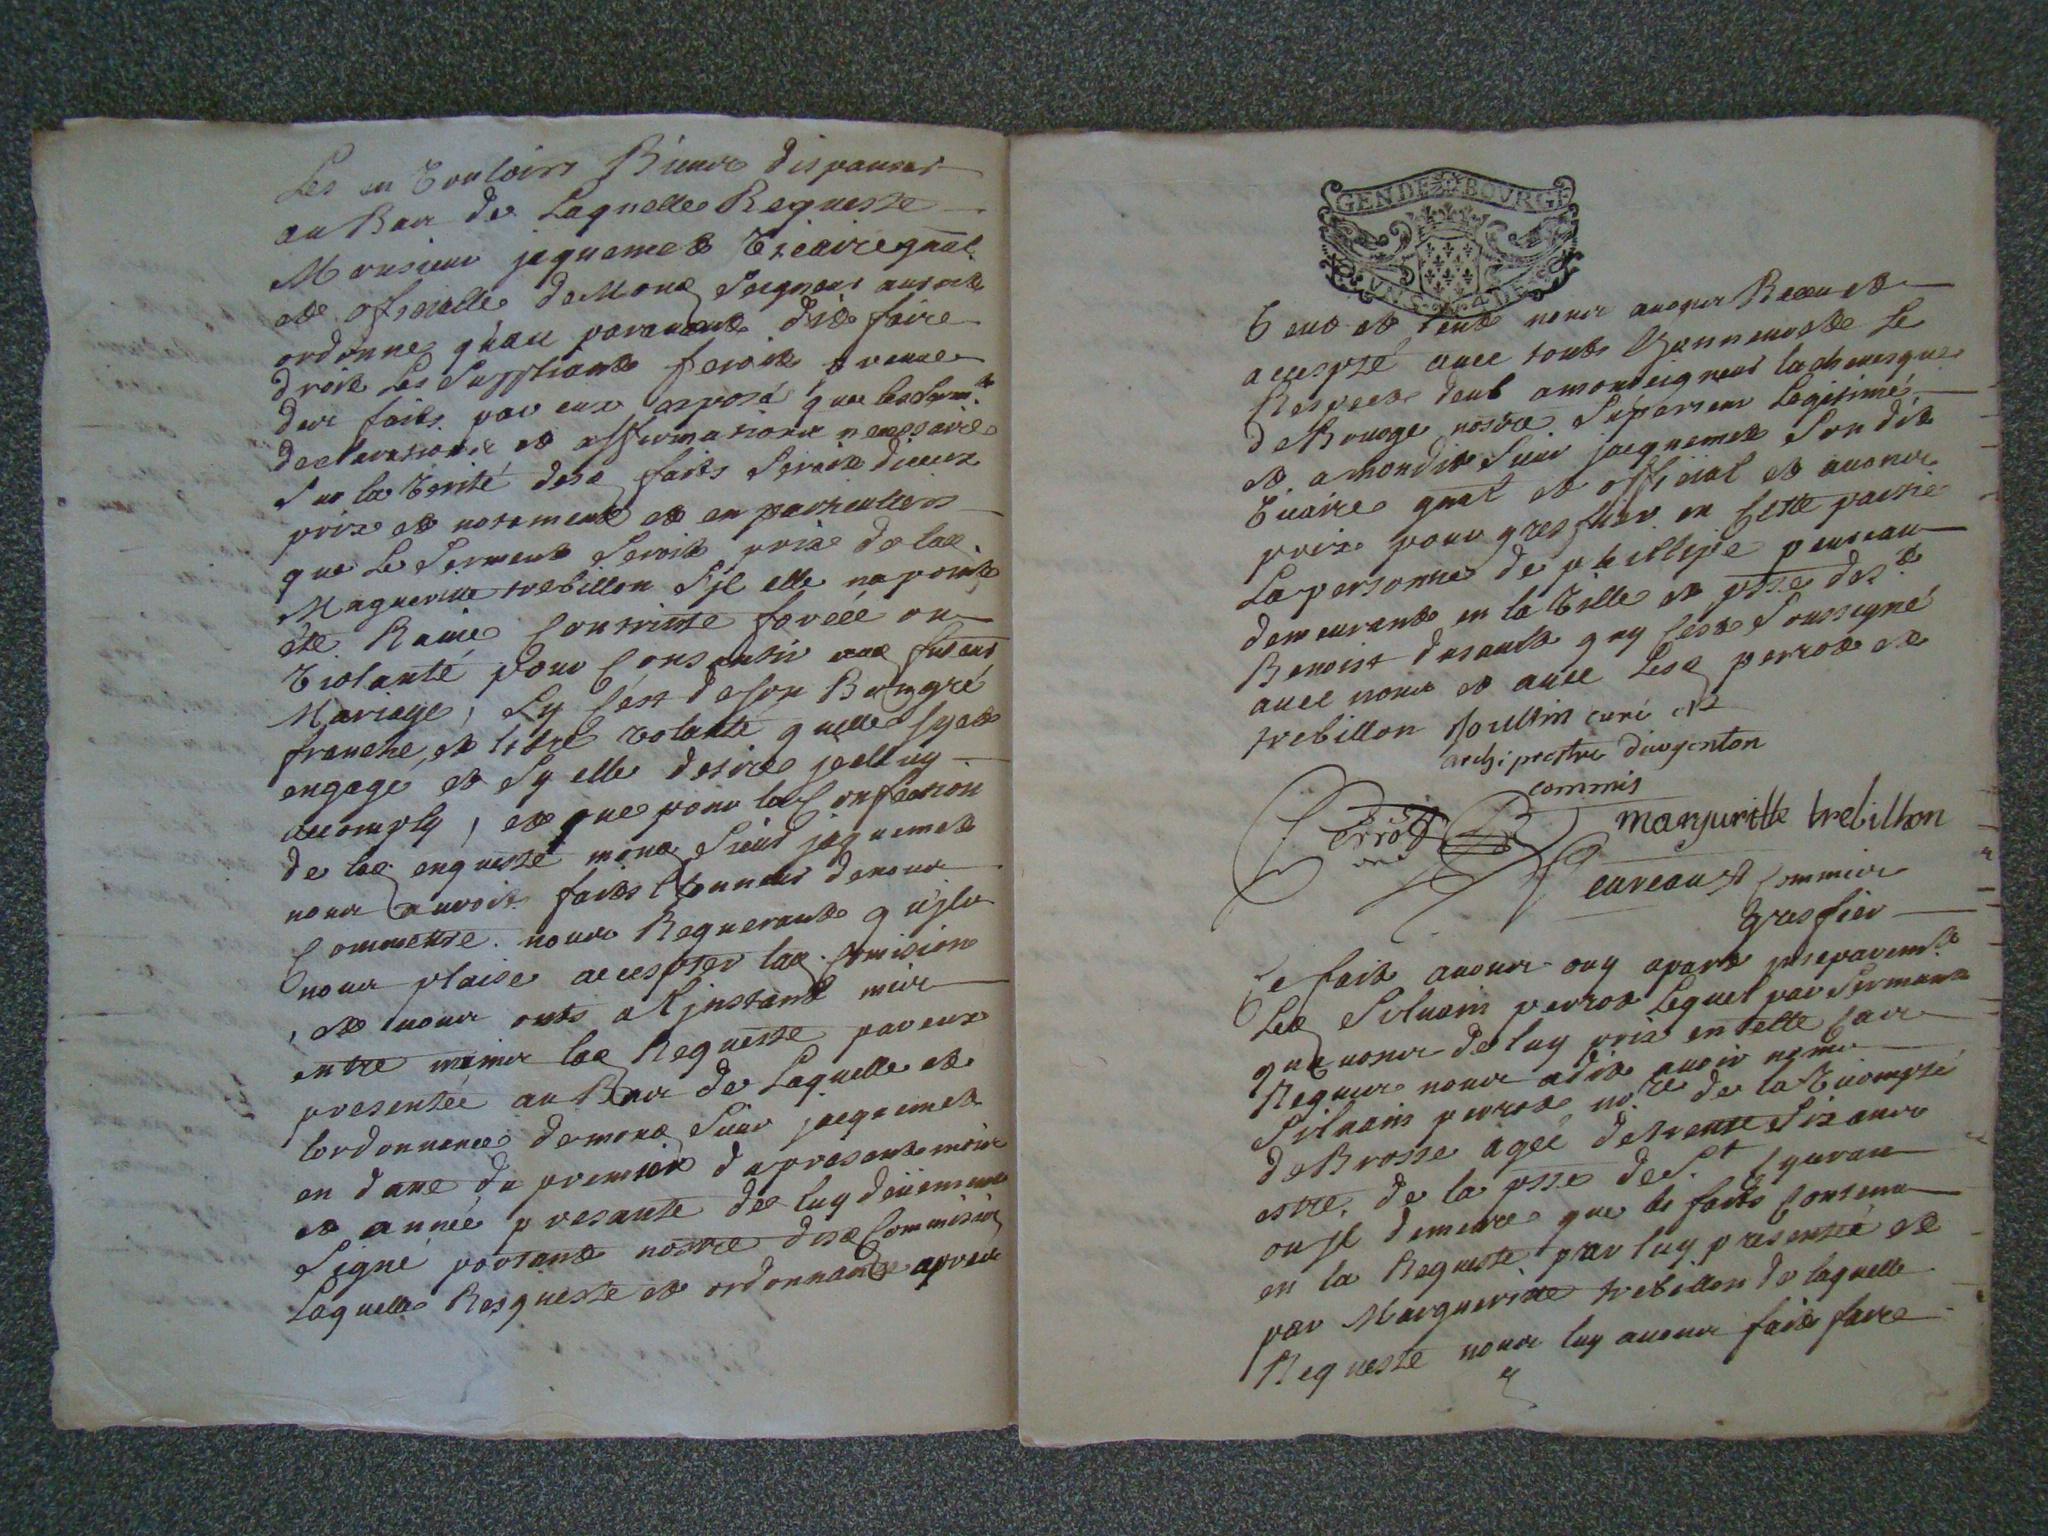 Les en vouloirs Bienr dispancer
au Bar de Laquelle Requeste
Monsieur jaquemet vicaire gnal.
et offisialle de Mond Seigneur auroit
ordonner qu'au paravant dit faire
droit Les Suppliants feroit preuve
der faits par eux exposé que les serm.ts
declarationr et affirmationr necessaire
Sur la verité desd faits Seroit d'iceux
prix et notament et en particuliers
que Le Serment Seroit prix de lad.
Marguerite trebillon S'jl elle na point
été Ravie Contrinte forcéé ou
violanté pour Consentir aud futeur
Mariage, Sy C'est de son Bongré
franche et libre volanté quelle Sy est
engagé et Sy elle desire jcelluy
accomply, et que pour la Confection
de lad enqueste mond Sieur jaquemet
nour auroit faits l'honneur de nour
Commettre. nour Requerante qu'jlr
nour plaise accepter lad. Comision
, et nour onts a l'jnstant mir
entre mainr lad Requeste par eux
presentéé au Bar de Laquelle est
lordonnance demond Sieur jacquemet
en datte du premier du present moir
et année presante de luy deüement
Signé portante nostre dite Commision
Laquelle Resqueste et ordonnance apreir
GEN DE BOVRGE
VN S 4 DE
veue et leue nour avonr Receu et
accepté avec touts l'honneur et Le
Respect deub a monseigneur larchevesque
de Bourge nostre Superieur Legitime
et a mondit Sieur jacquemet Son dit
vicaire gnal et official et avonr
prix pour gresfier en Cette partie
La personne de phillipe pineau
demeurante en la ville et psse de St
Benoist dusault quy s'est Soussigné
avec nour et avec Lesd perrot et
trebillon Poultin curé et
archiprestre d'argenton
commis
Perrot margueritte trebillon
Commir
Gresfier
Ce fait avonr ouy apart separem.t
Led Silvain perrot Lequel par Serment
que nour de luy prix en telle Car
Requir nour a dit avoir nome
Silvain perrot no.re de la vicompté
de Brosse agéé de trente Six anr
estre de la psse de St Cyvran
ou jl demeure que les faits Contenu
en la Requeste par luy presenté et
par Marguerite trebillon de laquelle
Requeste nour luy avonr fait faire